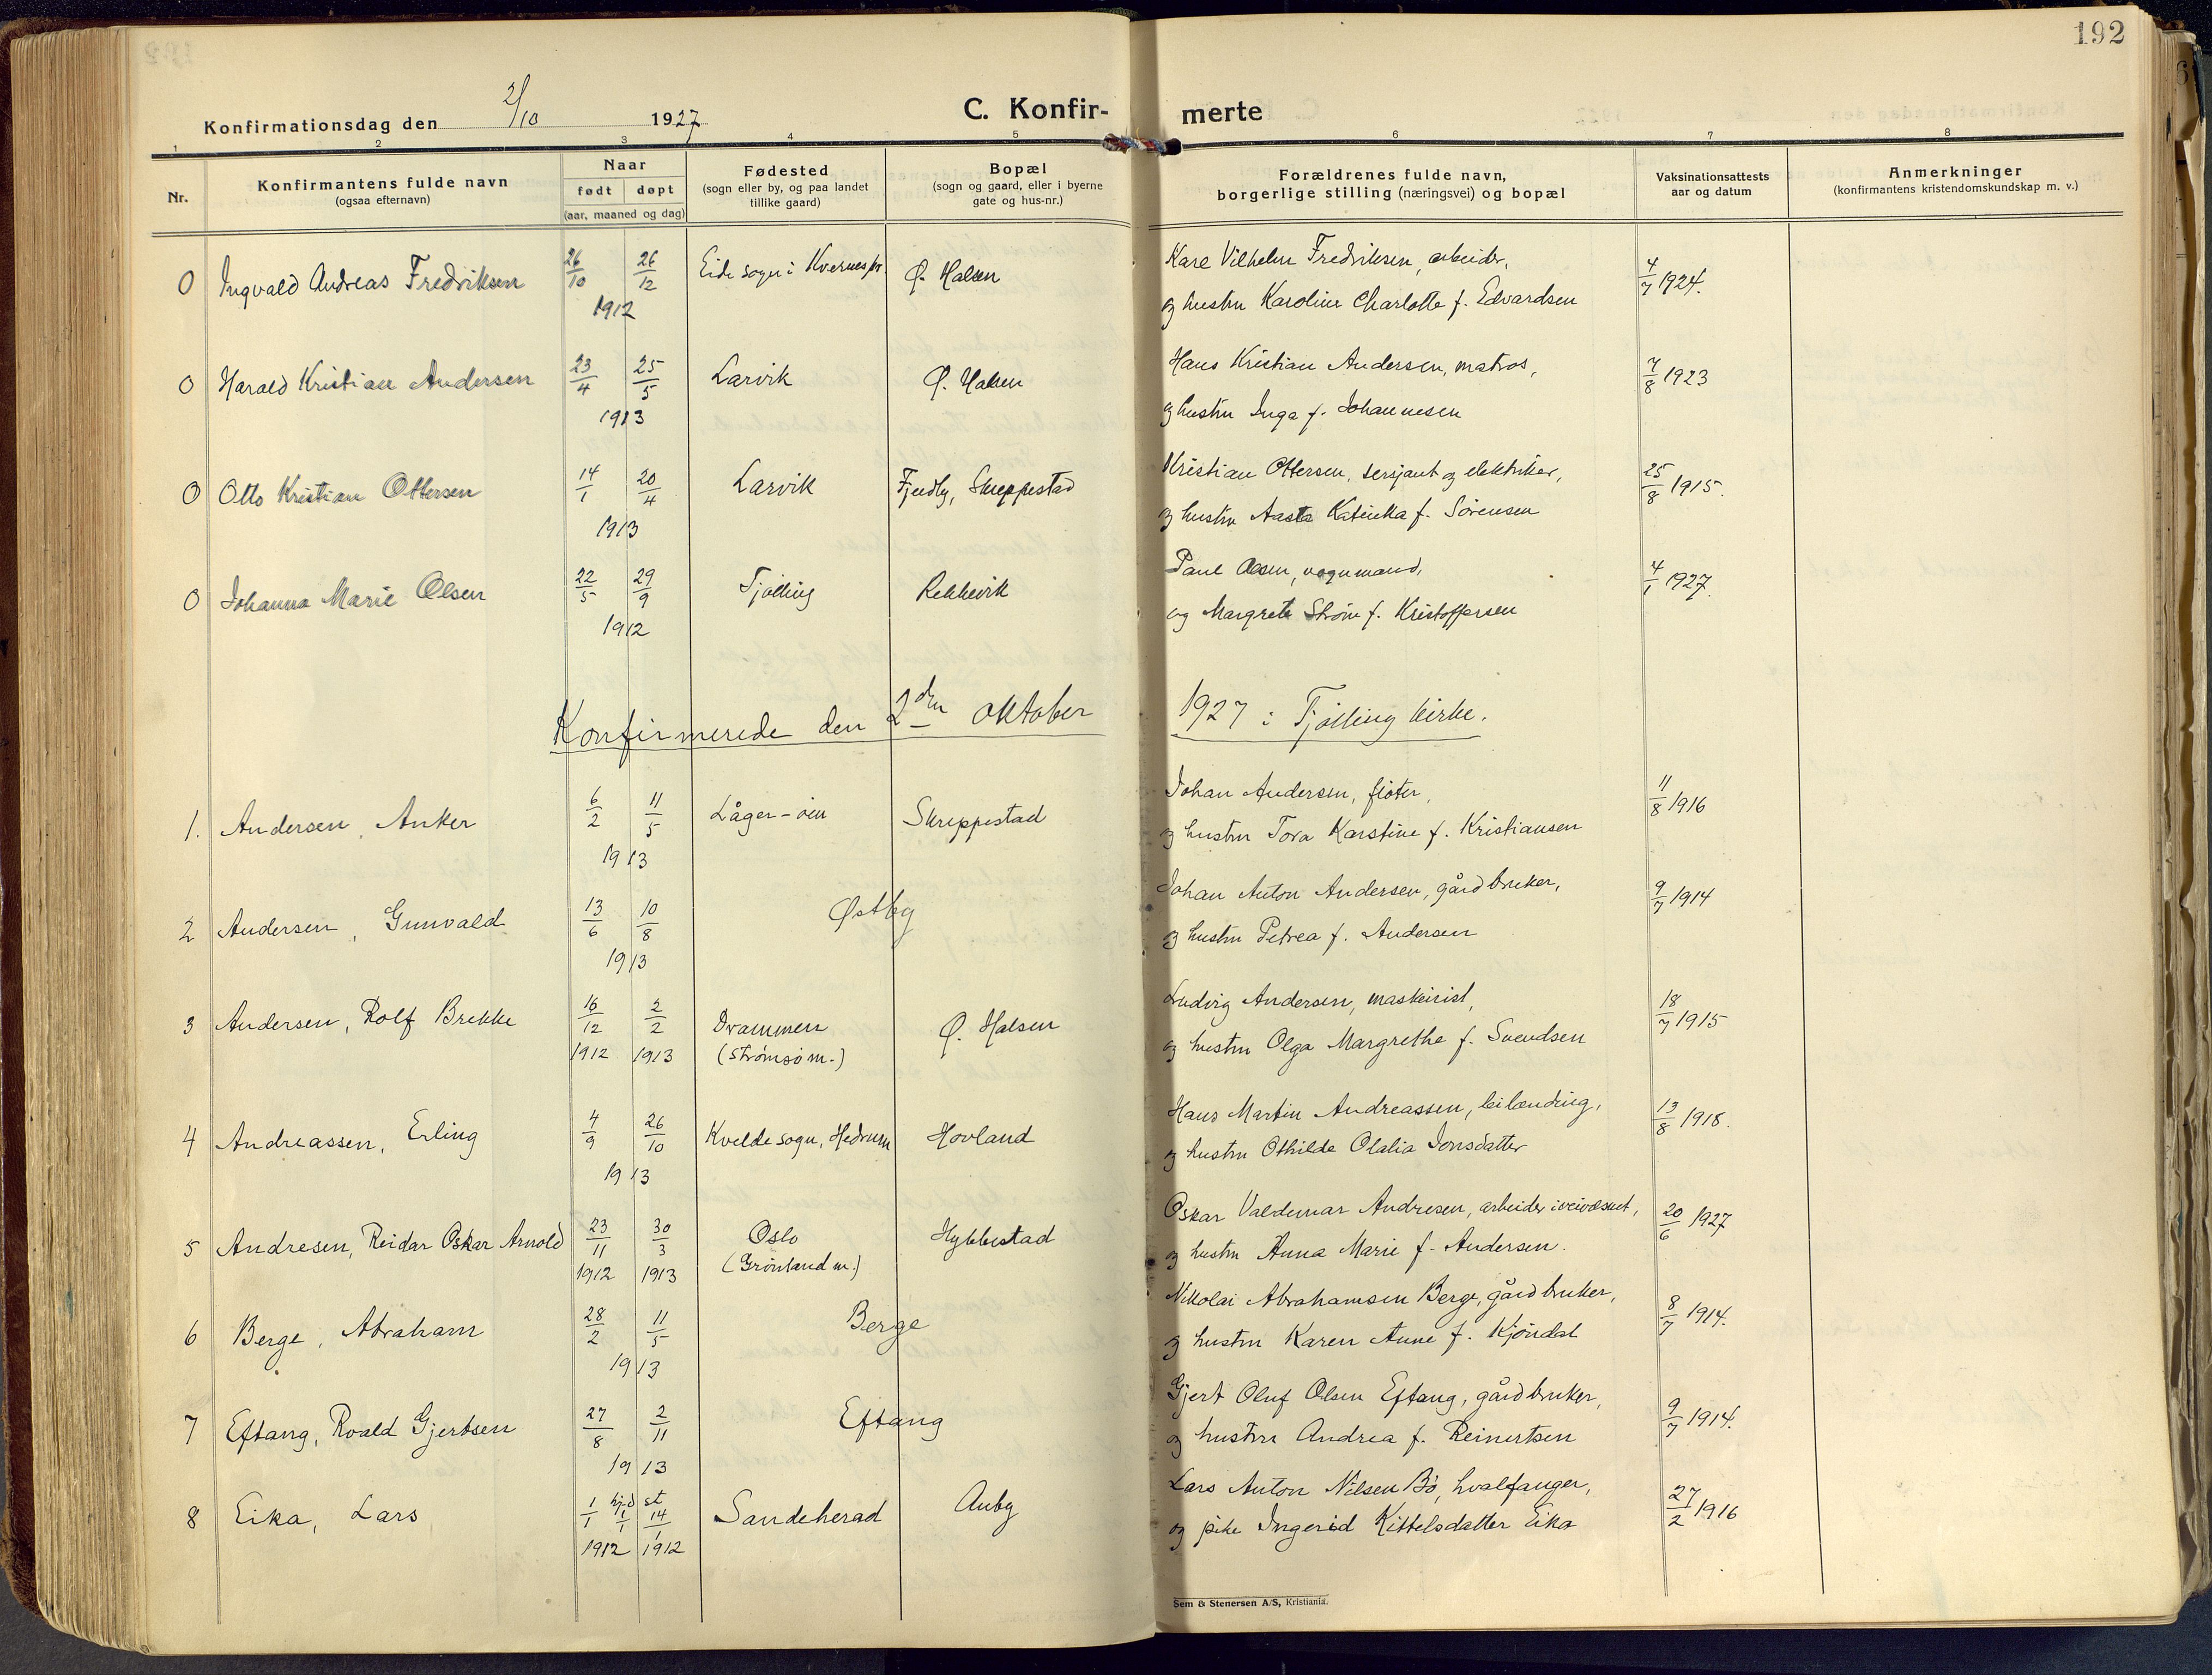 192
Konfirmationsdag den 2/10 1927
C. Konfir- merte
1 2 3 4 5 6 7 8
Nr.
Konfirmantens fulde navn
(ogsaa efternavn)
Naar
født døpt
(aar, maaned og dag)
Fødested
(sogn eller by, og paa landet
tillike gaard)
Bopæl
(sogn og gaard, eller i byerne
gate og hus-nr.)
Forældrenes fulde navn,
borgerlige stilling (næringsvei) og bopæl
Vaksinationsattests
aar og datum
Anmerkninger
(konfirmantens kristendomskundskap m. v.)
0 Ingvald Andreas Fredriksen 26/10 26/12 1912 Eide sogn i Kvernes pr. Ø. Halsen Karl Vilhelm Fredriksen, arbeider, 4/7 1924.
og hustru Karoline Charlotte f. Edvardsen
0 Harald Kristian Andersen 23/4 25/5 1913 Larvik Ø. Halsen Hans Kristian Andersen, matros, 7/8 1923
og hustru Inga f. Johannesen
0 Otto Kristian Ottersen 14/1 20/4 1913 Larvik Fjeldly, Skreppestad Kristian Ottersen, sersjant og elektriker, 25/8 1915.
og hustru Aasta Katinka f. Sørensen
0 Johanna Marie Olsen 22/5 29/9 1912 Tjølling Rekkevik Paul Olsen, vognmand, 4/1 1927.
og Margrete Strøm f. Kristoffersen
Konfirmerede den 2den oktober 1927 i Tjølling kirke.
1. Andersen, Anker 6/2 11/5 1913 Låger-øen Skreppestad Johan Andersen, fløter, 11/8 1916
og hustru Tora Karstine f. Kristiansen
2 Andersen, Gunvald 13/6 10/8 1913 Østby Johan Anton Andersen, gårdbruker, 9/7 1914
og hustru Petrea f. Andersen
3 Andersen, Rolf Brekke 16/12 1912 2/2 1913 Drammen (Strømsø m.) Ø. Halsen Ludvig Andersen, maskinist, 18/7 1915
og hustru Olga Margrethe f. Svendsen
4 Andreassen, Erling 4/9 26/10 1913 Kvelde sogn, Hedrum Hovland Hans Martin Andreassen, leilænding, 13/8 1918.
og hustru Othilde Olalia Jonsdatter
5 Andresen, Reidar Oskar Arnold 23/11 1912 30/3 1913 Oslo (Grønland m.) Hybbestad Oskar Valdemar Andresen, arbeider i veivæsnet, 20/6 1927
og hustru Anna Marie f. Andersen.
6 Berge, Abraham 28/2 11/5 1913 Berge Nikolai Abrahamsen Berge, gårdbruker, 8/7 1914.
og hustru Karen Anne f. Kjøndal
7 Eftang, Roald Gjertsen 27/8 2/11 1913 Eftang Gjert Oluf Olsen Eftang, gårdbruker, 9/7 1914.
og hustru Andrea f. Reinertsen
8 Eika, Lars 1/1 1912 hjd 1/1 st 14/1 1912 Sandeherad Auby Lars Anton Nilsen Bø, hvalfanger, 27/2 1916
og pike Ingerid Kittelsdatter Eika
Sem & Stenersen A/S, Kristiania.